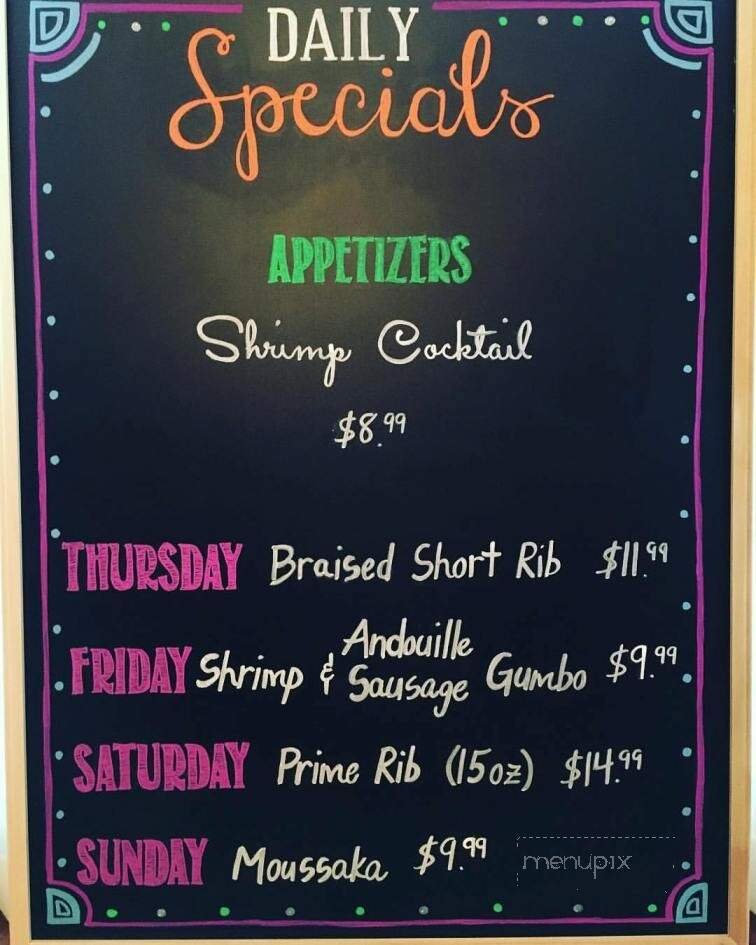 DAILY
Specials
APPETIZERS
Shrimp Cocktail
$8.99
THURSDAY Braised Short Rib $11.99
FRIDAY Shrimp & Andouille Sausage Gumbo $9.99
SATURDAY Prime Rib (15oz) $14.99
SUNDAY Moussaka $9.99
menupix